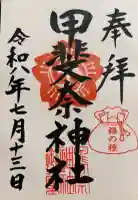 奉拝
甲斐奈神社
令和八年七月十三日
福の種